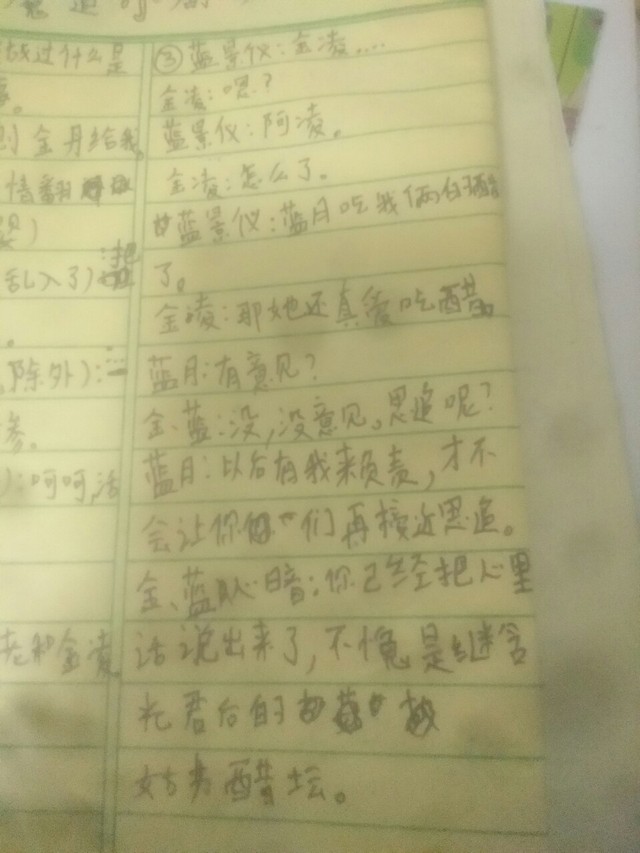 故过什么是
③蓝景仪:金凌....
金凌:嗯?
到金丹给我
蓝景仪:阿凌。
情翻
金凌:怎么了。
蓝景仪:蓝月吃我俩的醋
乱入了)
了。
金凌:那她还真爱吃醋。
除外):
蓝月:有意见?
参。
金、蓝:没,没意见。思追呢?
):呵呵,活
蓝月:以后有我来负责,才不
会让你们再接近思追。
金、蓝心暗:你已经把心里
和金凌
话说出来了,不愧是继含
光君后的
醋坛。